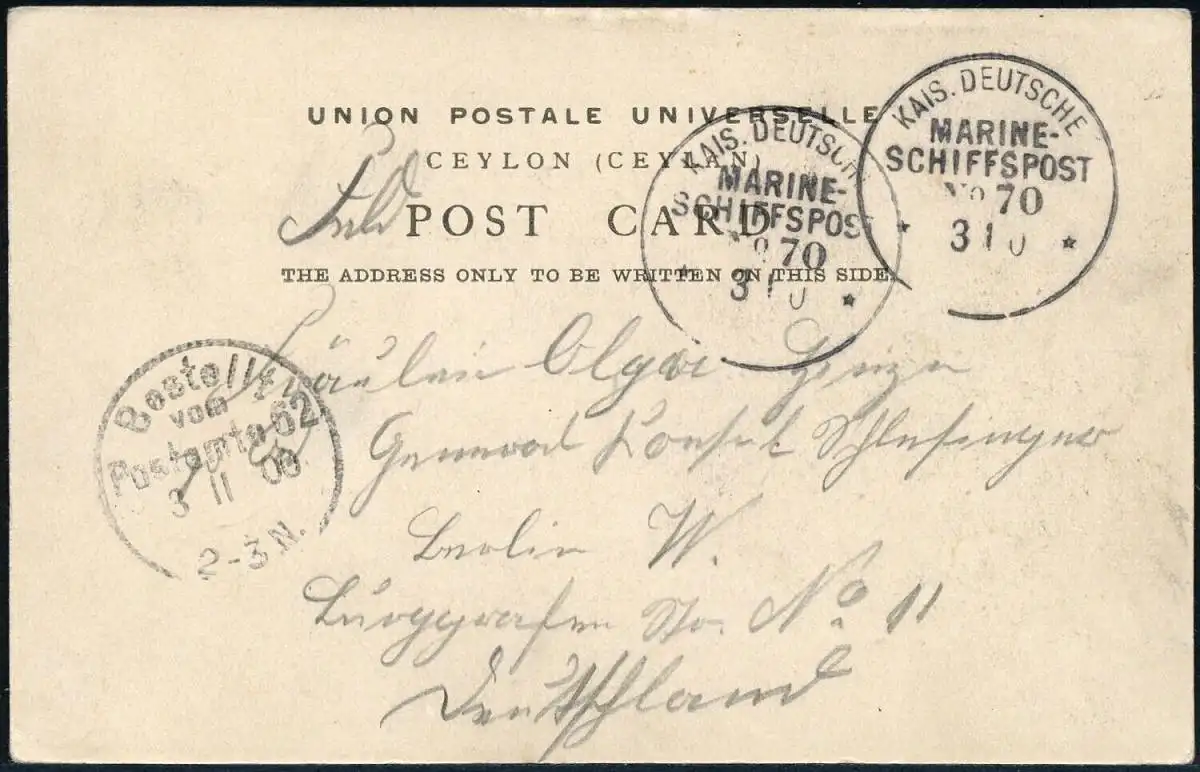 UNION POSTALE UNIVERSELLE
CEYLON (CEYLAN)
POST CARD
THE ADDRESS ONLY TO BE WRITTEN ON THIS SIDE.
KAIS. DEUTSCHE
MARINE-
SCHIFFSPOST
No 70
3 10
KAIS. DEUTSCH
MARINE-
SCHIFFSPOST
No 70
3 10
Bestellt
vom
Postamte 62
3 11 00
2-3 N.
Fräulein Olga
General Konsul Schlesinger
Berlin W.
Burggrafen Str. No. 11
Deutschland